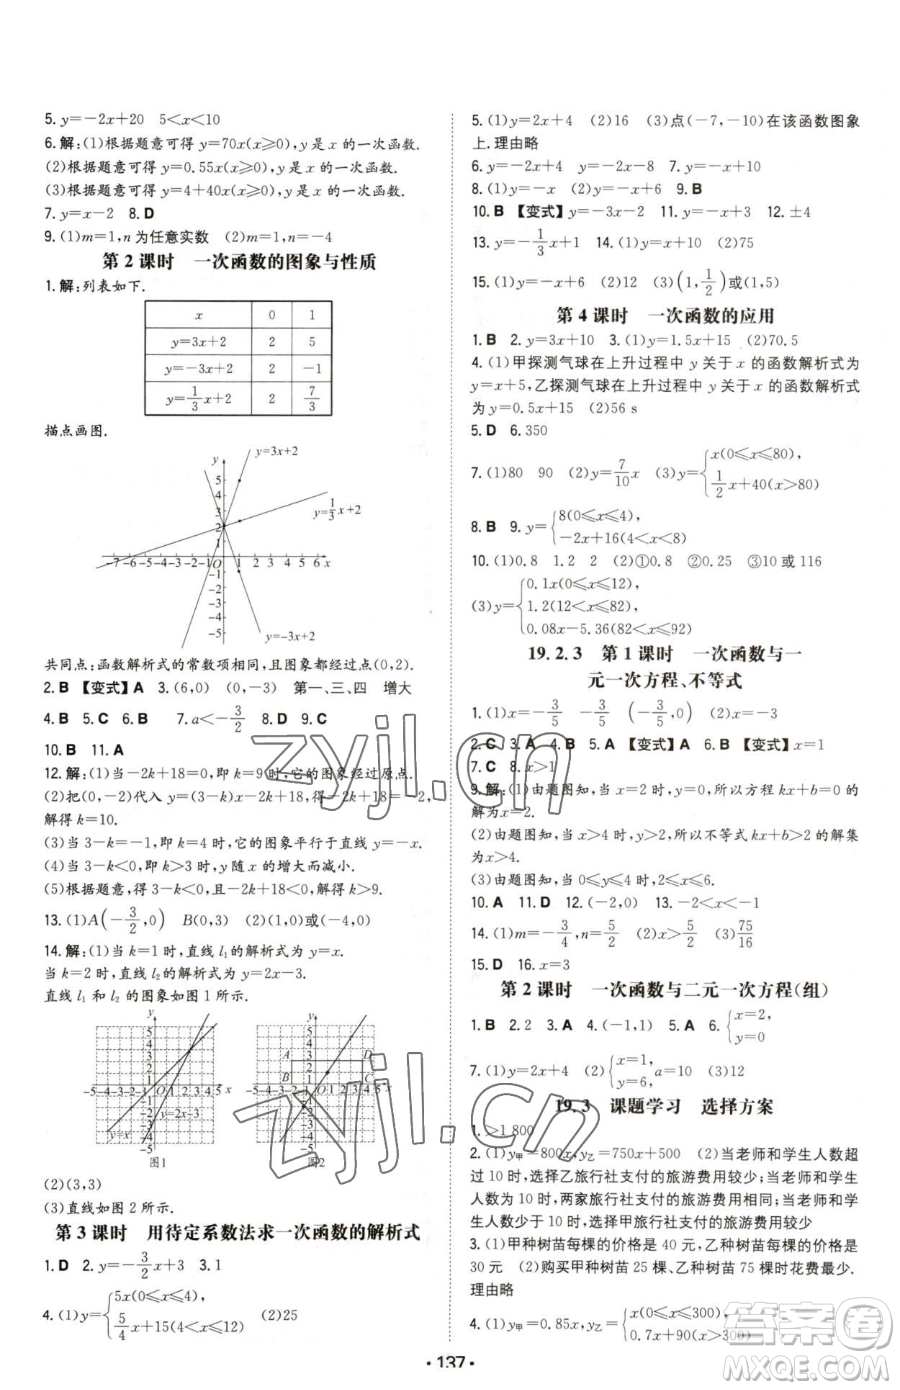 5. y=-x+20　5<x<10
6. 解:(1)根据题意可得 y=70x(x⩾0),y 是 x 的一次函数.
(2)根据题意可得 y=0.55x(x⩾0),y 是 x 的一次函数.
(3)根据题意可得 y=4+40x(x⩾0),y 是 x 的一次函数.
7. y=x-2　8. D
9. (1)m=1,n 为任意实数　(2)m=1,n=-4
第 2 课时　一次函数的图象与性质
1. 解:列表如下.
x　0　1
y=3x+2　2　5
y=-3x+2　2　-1
y=1/3x+2　2　7/3
描点画图.
y=3x+2
y=1/3x+2
y=-3x+2
共同点:函数解析式的常数项相同,且图象都经过点(0,2).
2. B　【变式】A　3. (6,0)　(0,-3)　第一、三、四　增大
4. B　5. C　6. B　7. a<-3/2　8. D　9. C
10. B　11. A
12. 解:(1)当-2k+18=0,即 k=9 时,它的图象经过原点.
(2)把(0,-2)代入 y=(3-k)x-2k+18,得-2k+18=-2,
解得 k=10.
(3)当 3-k=-1,即 k=4 时,它的图象平行于直线 y=-x.
(4)当 3-k<0,即 k>3 时,y 随 x 的增大而减小.
(5)根据题意,得-2k+18<0,解得 k>9.
13. (1)A(-3/2,0)　B(0,3)　(2)(1,0)或(-4,0)
14. 解:(1)当 k=1 时,直线 l₁ 的解析式为 y=x.
当 k=2 时,直线 l₂ 的解析式为 y=2x-3.
直线 l₁ 和 l₂ 的图象如图 1 所示.
y=x
y=2x-3
图1
A
D
B
C
图2
(2)(3,3)
(3)直线如图 2 所示.
第 3 课时　用待定系数法求一次函数的解析式
1. D　2. y=-3/2x+3　3. 1
4. (1)y={5x(0⩽x⩽4), 5/4x+15(4<x⩽12)　(2)25
5. (1)y=2x+4　(2)16　(3)点(-7,-10)在该函数图象
上.理由略
6. y=-2x+4　y=-2x-8　7. y=x+4
8. (1)y=-x　(2)y=-x+6　9. B
10. B　【变式】y=-3x-2　11. y=2x-1　12. ±4
13. y=-1/3x+1　14. (1)y=x+15　(2)75
15. (1)y=-2x+6　(2)12　(3)(1,1/2)或(1,5)
第 4 课时　一次函数的应用
1. B　2. y=3x+10　3. (1)y=1.5x+4.5　(2)70.5
4. (1)甲探测气球在上升过程中 y 关于 x 的函数解析式为
y=x+5,乙探测气球在上升过程中 y 关于 x 的函数解析式
为 y=0.5x+15　(2)56 s
5. D　6. 350
7. (1)80　90　(2)y=7/10x　(3)y={x(0⩽x⩽80), 1/2x+40(x>80)
8. B　9. y={8(0⩽x⩽4), -2x+16(4<x<8)
10. (1)0.8　1.2　2　(2)①0.8　②0.25　③10 或 116
(3)y={0.1x(0⩽x⩽12), 1.2(12<x⩽82), 0.08x-5.36(82<x⩽92)
19.2.3　第 1 课时　一次函数与一
元一次方程、不等式
1. (1)x=-3/5　-3/5　(-3/5,0)　(2)x=-3
2. C　3. A　4. B　5. A　【变式】A　6. B　【变式】x=1
7. C　8. x>1
9. 解:(1)由题图知,当 x=2 时,y=0,所以方程 kx+b=0 的
解为 x=2.
(2)由题图知,当 x>4 时,y>2,所以不等式 kx+b>2 的解集
为 x>4.
(3)由题图知,当 0⩽y⩽4 时,2⩽x⩽6.
10. A　11. D　12. (-2,0)　13. -2<x<-1
14. (1)m=-3/4,n=5/2　(2)x>5/2　(3)75/16
15. D　16. x=3
第 2 课时　一次函数与二元一次方程(组)
1. B　2. 2　3. A　4. (-1,1)　5. A　6. {x=2, y=0
7. (1)y=2x+4　(2){x=1, y=6,a=10　(3)72
19.3　课题学习　选择方案
1. >1 800
2. (1)y甲=600x+1000　y乙=750x+500　(2)当老师和学生人数超
过 10 时,选择乙旅行社支付的旅游费用较少;当老师和学生
人数为 10 时,两家旅行社支付的旅游费用相同;当老师和学
生人数超过 10 时,选择甲旅行社支付的旅游费用较少
3. (1)甲种树苗每棵的价格是 40 元,乙种树苗每棵的价格是
10 元　(2)购买甲种树苗 25 棵,乙种树苗 75 棵时花费最少.
理由略
4. (1)y甲=0.85x,y乙={x(0⩽x⩽300), 0.7x+90(x>300)
• 137 •
zyjl.cn
zyjl.cn
答案圈
MXQE.COM